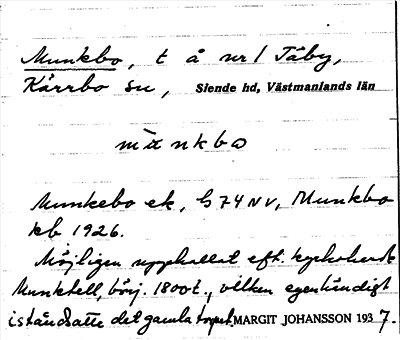 Munkbo, t å nr 1 Täby,
Kärrbo sn, Siende hd, Västmanlands län
mùnkbo
Munkebo ek, G 74 NV, Munkbo
kb 1926.
Möjligen uppkallat eft. kyrkoherde
Munktell, börj. 1800t., vilken egenhändigt
iståndsatte det gamla torpet. MARGIT JOHANSSON 1937.